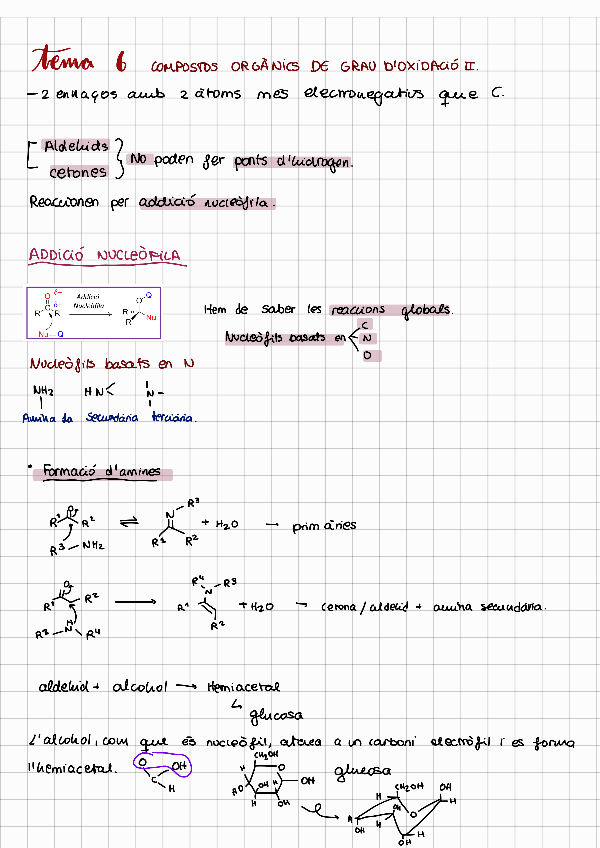 tema 6 COMPOSTOS ORGÀNICS DE GRAU D'OXIDACIÓ II.
- 2 enllaços amb 2 àtoms més electronegatius que C.
Aldehids
cetones
No poden fer ponts d'hidrogen.
Reaccionen per addició nucleòfila.
ADDICIÓ NUCLEÒFILA
Addició
Nucleòfila
O δ- C δ+ R R Nu-Q
O-Q R R Nu
Hem de saber les reaccions globals.
Nucleòfils basats en C
N
O
Nucleòfils basats en N
NH2 HN N
Amina 1a secundària terciària.
* Formació d'amines
O R1 R2 ⇌ N-R3 R1 R2 + H2O → primàries
R3-NH2
O R1 R2 → R4 N R3 R1 R2 + H2O → cetona/aldehid + amina secundària.
R3-N-R4 H
aldehid + alcohol → Hemiacetal
↳ glucosa
L'alcohol, com que és nucleòfil, ataca a un carboni electròfil i es forma
l'hemiacetal. O OH C H
CH2OH H O OH H OH H OH glucosa
CH2OH OH H H O OH H OH H OH